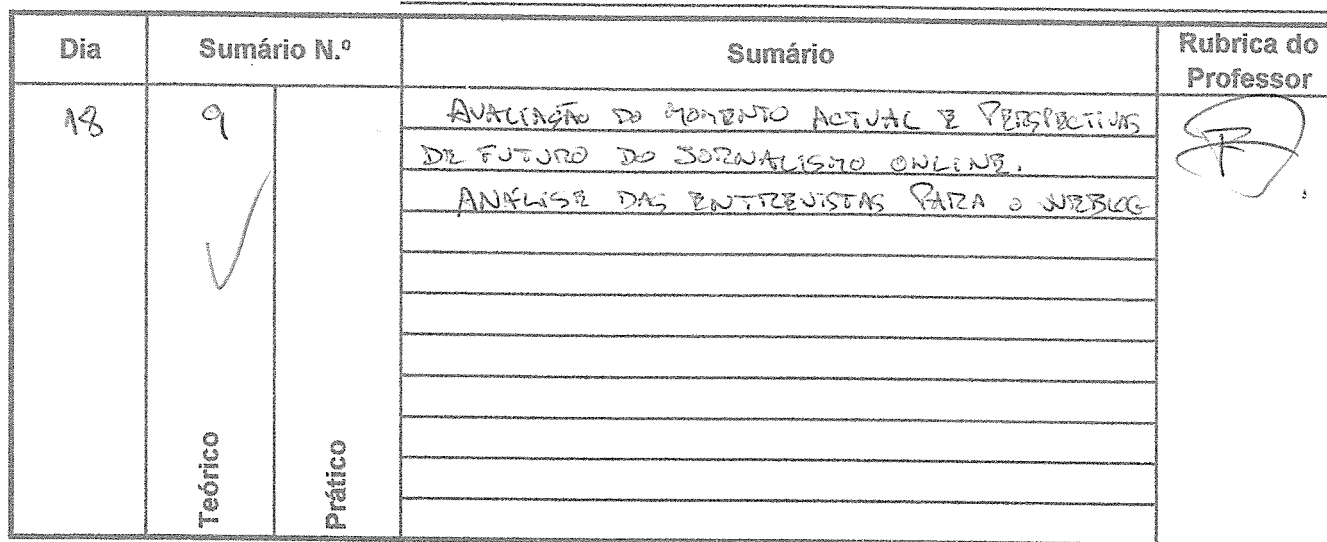 Dia Sumário N.º Sumário Rubrica do Professor
18 9 AVALIAÇÃO DO MOMENTO ACTUAL E PERSPECTIVAS
DE FUTURO DO JORNALISMO ONLINE.
ANÁLISE DAS ENTREVISTAS PARA O WEBLOG
Teórico Prático